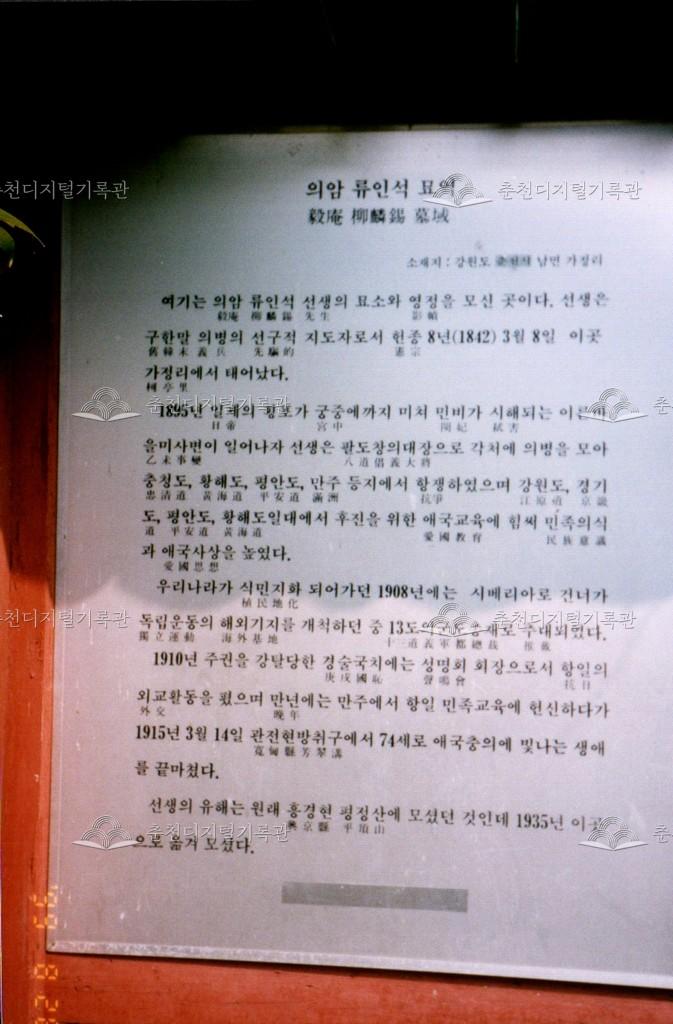 의암 류인석 묘역
毅庵 柳麟錫 墓域
소재지 : 강원도 춘천시 남면 가정리
여기는 의암 류인석 선생의 묘소와 영정을 모신 곳이다. 선생은
毅庵 柳麟錫 先生 影幀
구한말 의병의 선구적 지도자로서 헌종 8년(1842) 3월 8일 이곳
舊韓末 義兵 先驅的 憲宗
가정리에서 태어났다.
柯亭里
1895년 일제의 횡포가 궁중에까지 미쳐 민비가 시해되는 이른바
日帝 宮中 閔妃 弑害
을미사변이 일어나자 선생은 팔도창의대장으로 각처에 의병을 모아
乙未事變 八道倡義大將
충청도, 황해도, 평안도, 만주 등지에서 항쟁하였으며 강원도, 경기
忠清道 黃海道 平安道 滿洲 抗爭 江原道 京畿
도, 평안도, 황해도일대에서 후진을 위한 애국교육에 힘써 민족의식
道 平安道 黃海道 愛國教育 民族意識
과 애국사상을 높였다.
愛國思想
우리나라가 식민지화 되어가던 1908년에는 시베리아로 건너가
植民地化
독립운동의 해외기지를 개척하던 중 13도의군도총재로 추대되었다.
獨立運動 海外基地 十三道義軍都總裁 推戴
1910년 주권을 강탈당한 경술국치에는 성명회 회장으로서 항일의
庚戌國恥 聲鳴會 抗日
외교활동을 폈으며 만년에는 만주에서 항일 민족교육에 헌신하다가
外交 晩年
1915년 3월 14일 관전현방취구에서 74세로 애국충의에 빛나는 생애
寬甸縣芳翠溝
를 끝마쳤다.
선생의 유해는 원래 흥경현 평정산에 모셨던 것인데 1935년 이곳
興京縣 平頂山
으로 옮겨 모셨다.
춘천디지털기록관
'99 8 28